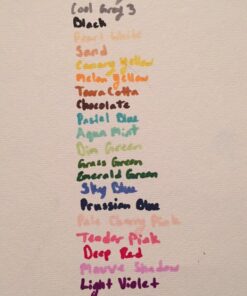 Cool Gray 3
Black
Pearl White
Sand
Canary Yellow
Melon Yellow
Terra Cotta
Chocolate
Pastel Blue
Aqua Mint
Dim Green
Grass Green
Emerald Green
Sky Blue
Prussian Blue
Pale Cherry Pink
Tender Pink
Deep Red
Mauve Shadow
Light Violet